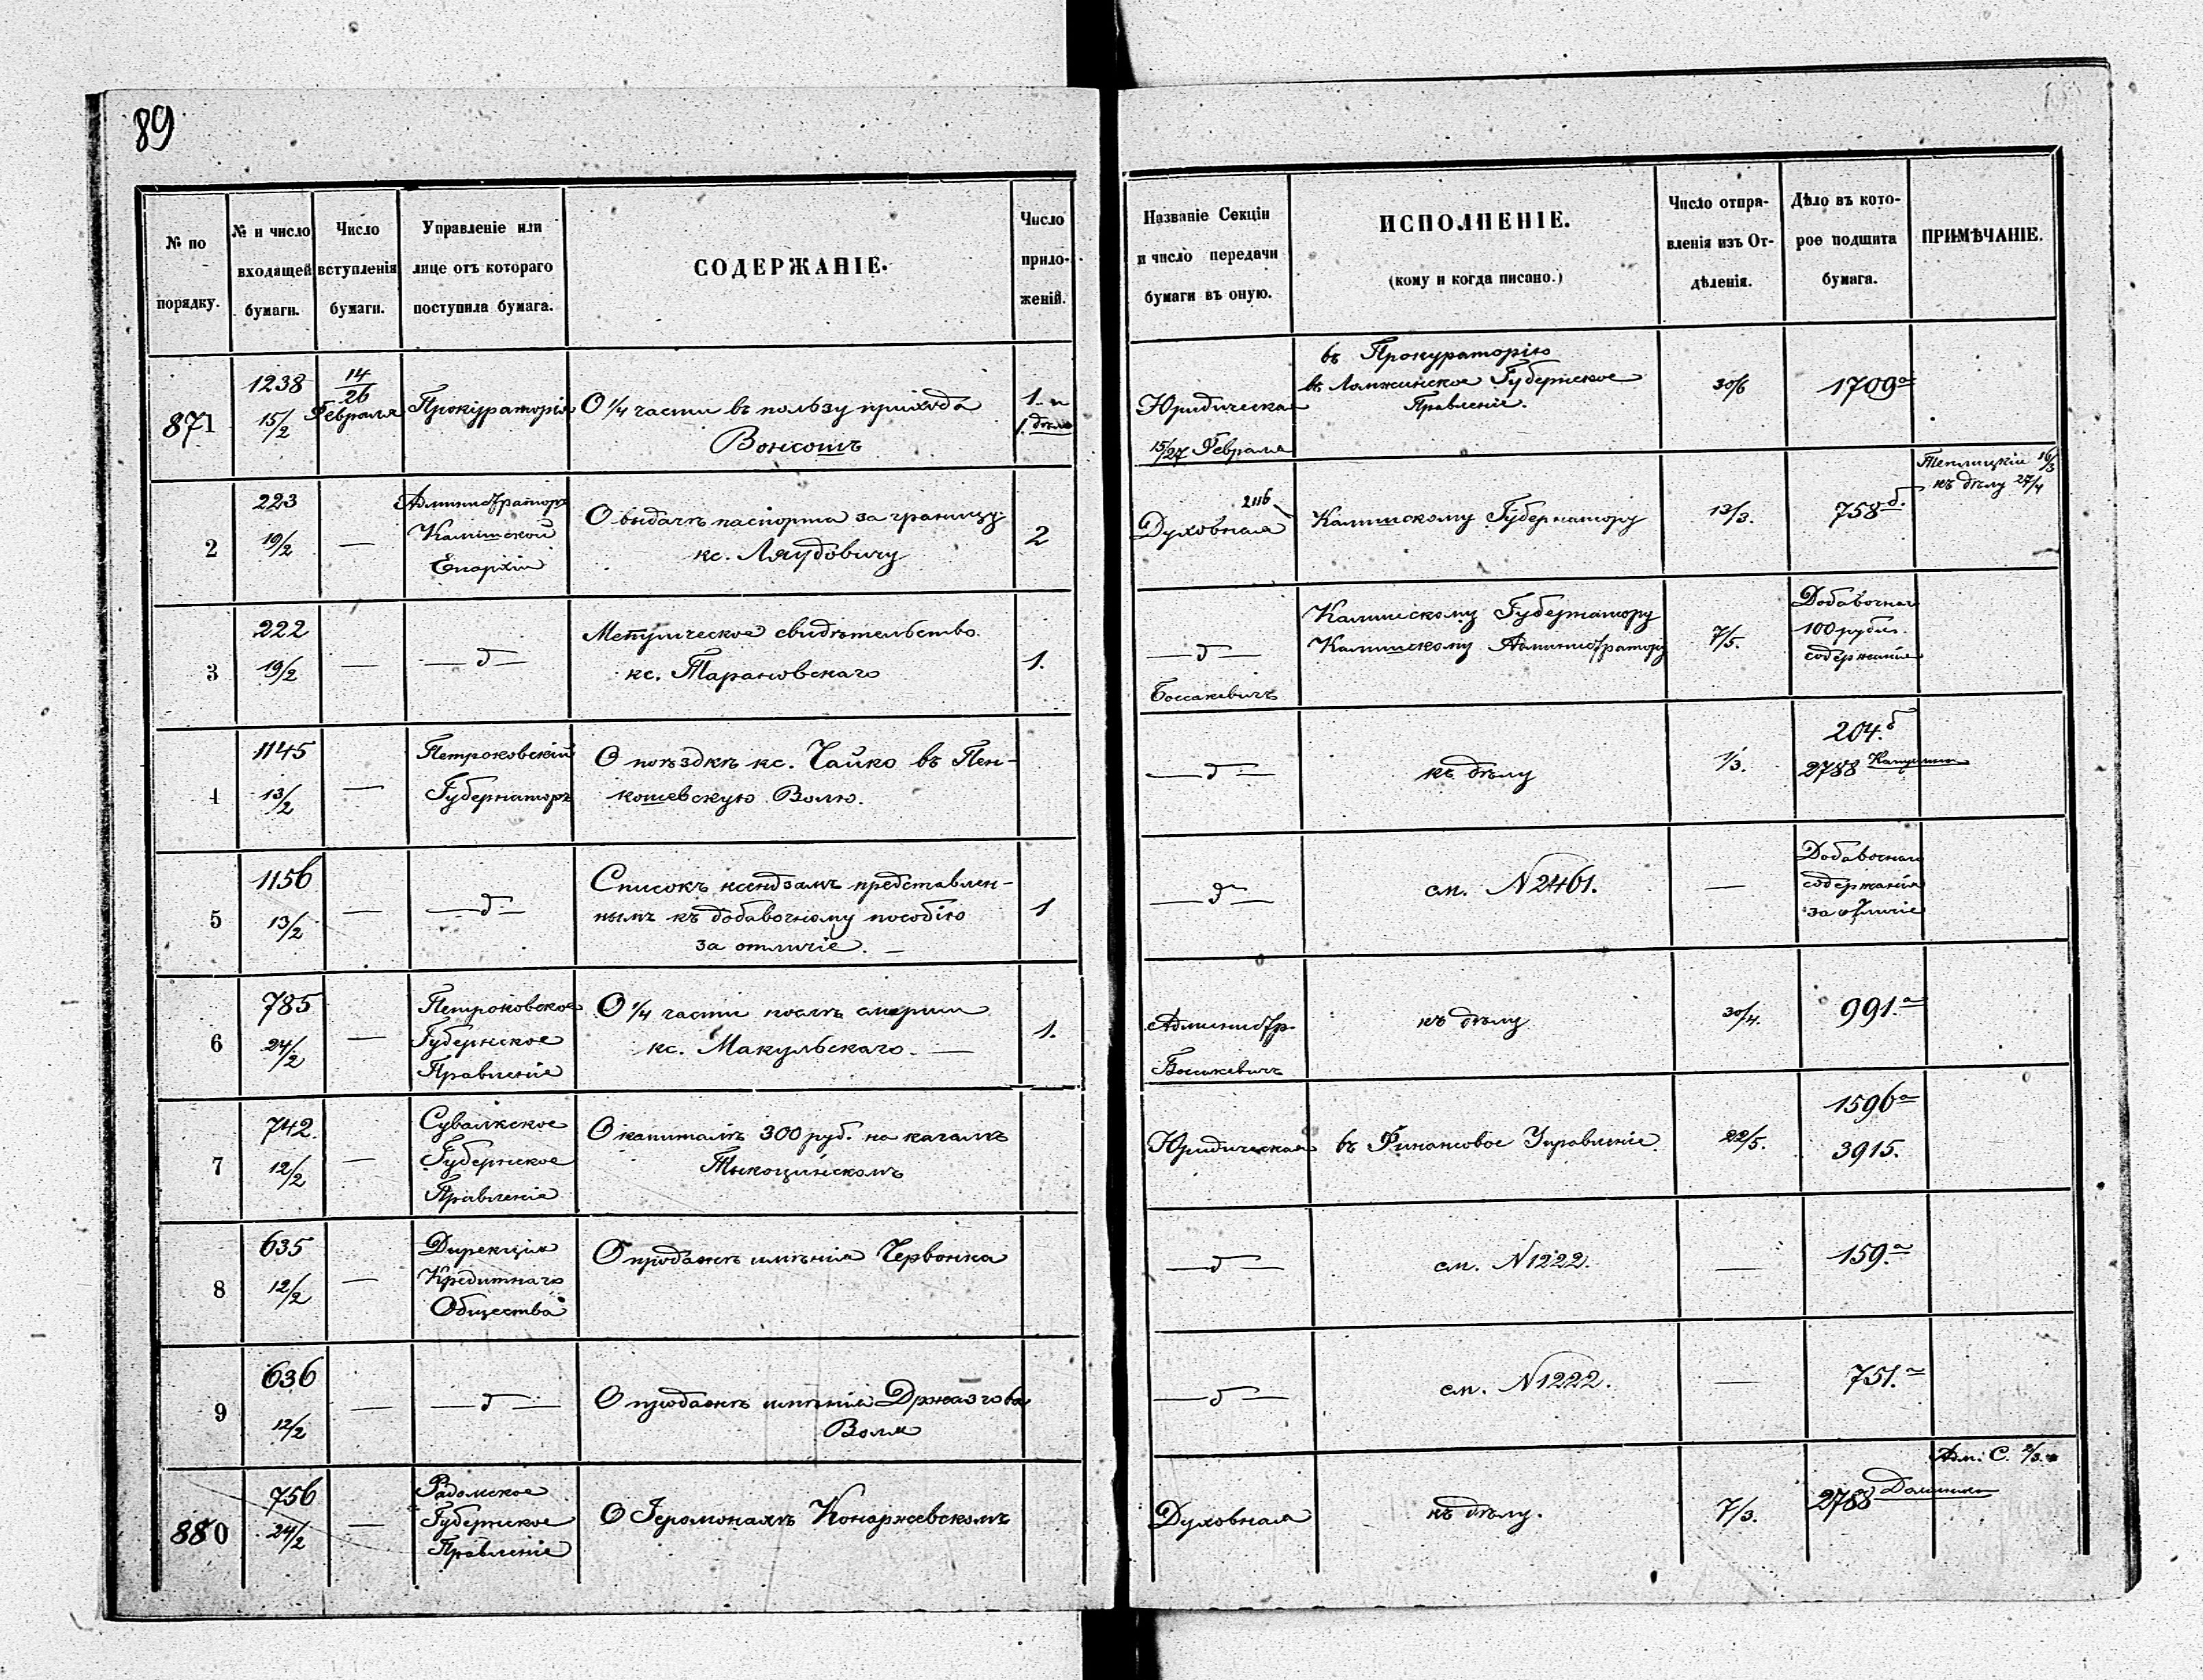 89
№ по порядку.
№ и число входящей бумаги.
Число вступленія бумаги.
Управленіе или лице отъ котораго поступила бумага.
СОДЕРЖАНІЕ.
Число приложеній.
Названіе Секціи и число передачи бумаги въ оную.
ИСПОЛНЕНІЕ.
(кому и когда писано.)
Число отправленія изъ Отдѣленія.
Дѣло въ которое подшита бумага.
ПРИМѢЧАНІЕ.
871
1238
15/2
14/26
Февраля
Прокураторія
О 1/4 части въ пользу прихода
Вонсошъ
1. и
1. дѣло
Юридическая
15/27 Февраля
въ Прокураторію
въ Ломжинское Губернское
Правленіе.
30/6
1709 а
2
223
19/2
—
Администраторъ
Калишской
Епархіи
О выдачѣ паспорта за границу
кс. Ляудовичу
2
2116
Духовная
Калишскому Губернатору
13/3.
758 б.
16/3
къ дѣлу 27/4
3
222
19/2
—
— д —
Метрическое свидѣтельство
кс. Тарановскаго
1.
— д —
Боссакевичъ
Калишскому Губернатору
Калишскому Администратору
7/5.
Добавочнаго
100 рубл.
содержанія
4
1145
13/2
—
Петроковскій
Губернаторъ
О поѣздкѣ кс. Чайко въ Пен-
кошевскую Волю.
— д —
къ дѣлу
1/3.
204. б
2788
5
1156
13/2
—
— д —
Списокъ ксендзамъ представлен-
нымъ къ добавочному пособію
за отличіе. —
1
— д —
см. N 2461.
—
Добавочнаго
содержанія
за отличіе
6
785
24/2
—
Петроковское
Губернское
Правленіе
О 1/4 части послѣ смерти
кс. Макульскаго. —
1.
Администр.
Боссакевичъ
къ дѣлу
30/4.
991. а
7
742.
12/2
—
Сувалкское
Губернское
Правленіе
О капиталѣ 300 руб. на кагалѣ
Тыкоцинскомъ
Юридическая
въ Финансовое Управленіе
22/5.
1596 а
3915.
8
635
12/2
—
Дирекція
Кредитнаго
Общества
О продажѣ имѣнія Червонка
— д —
см. N 1222.
—
159. а
9
636
12/2
—
— д —
О продажѣ имѣнія Држазгова
Воля
— д —
см. N 1222.
—
751. а
880
756
24/2
—
Радомское
Губернское
Правленіе
О Іеромонахѣ Конаржевскомъ
Духовная
къ дѣлу.
7/3.
2788
Адм. С. 2/3.